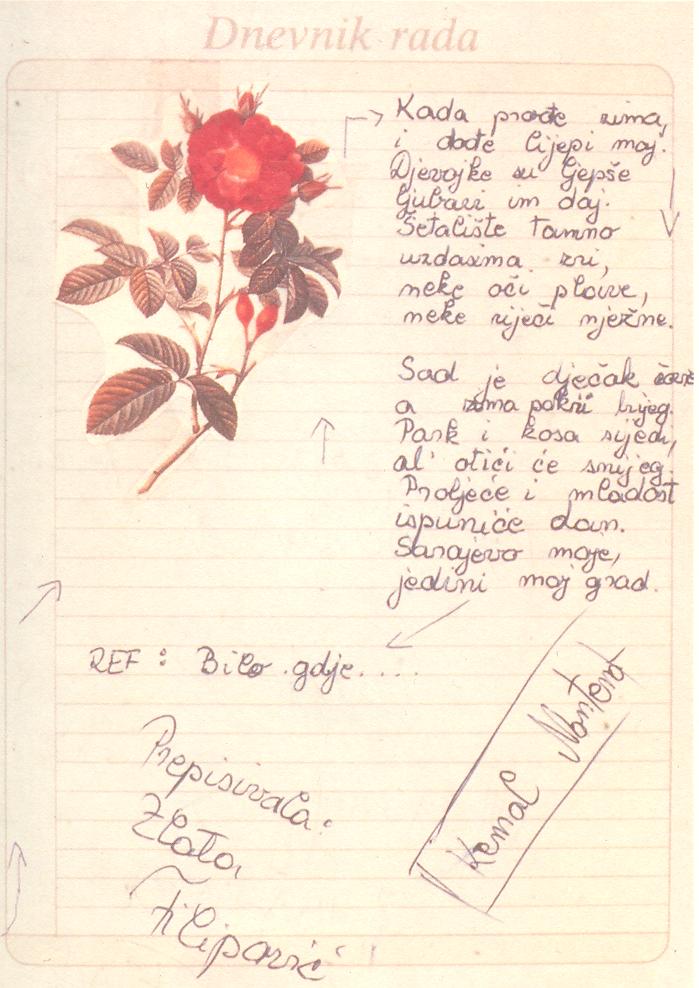 Dnevnik rada
Kada prođe zima,
i dođe lijepi maj.
Djevojke su ljepše
ljubavi im daj.
Šetalište tamno
uzdasima zri,
neke oči plave,
neke riječi nježne.
Sad je dječak
a zima pokri brijeg.
Park i kosa sijedi,
al' otići će snijeg.
Proljeće i mladost
ispuniće dan.
Sarajevo moje,
jedini moj grad.
REF: Bilo gdje....
Kemal Monteno
Prepisivala:
Zlata
Filipović